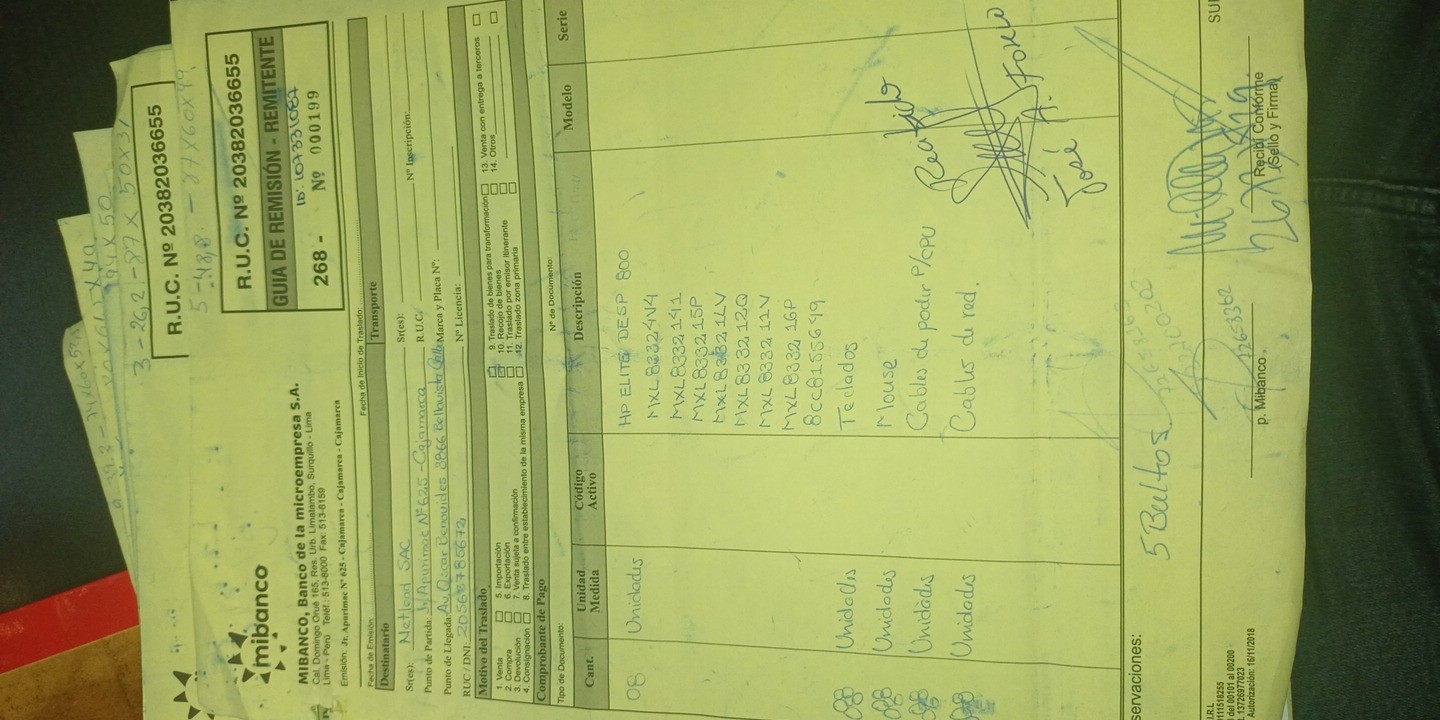 R.U.C. Nº 20382036655
mibanco
MIBANCO, Banco de la microempresa S.A.
Cal. Domingo Orué 165, Res. Urb. Limatambo, Surquillo - Lima
Lima - Perú Teléf.: 513-8000 Fax: 513-8159
Emisión: Jr. Apurimac Nº 625 - Cajamarca - Cajamarca
R.U.C. Nº 20382036655
GUIA DE REMISIÓN - REMITENTE
268 - Nº 000199
Fecha de Emisión:
Fecha de Inicio de Traslado:
Destinatario
Transporte
Sr(es): Netland SAC
Sr(es):
Nº Inscripción:
Punto de Partida: Jr Apurimac Nº 625 - Cajamarca
R.U.C:
Punto de Llegada: Av. Oscar Benavides 3866 Bellavista Callao
Marca y Placa Nº:
RUC / DNI:
Nº Licencia:
Motivo del Traslado
1. Venta
2. Compra
3. Devolución
4. Consignación
5. Importación
6. Exportación
7. Venta sujeta a confirmación
8. Traslado entre establecimiento de la misma empresa
9. Traslado de bienes para transformación
10. Recojo de bienes
11. Traslado por emisor itinerante
12. Traslado zona primaria
13. Venta con entrega a terceros
14. Otros
Comprobante de Pago
Tipo de Documento:
Nº de Documento:
Cant. Unidad Medida Código Activo Descripción Modelo Serie
08 Unidades HP ELITE DESP 800
MXL83324V4
MXL8332141
MXL833215P
MXL83321LV
MXL833212Q
MXL833211V
MXL833216P
8CC8155699
08 Unidades Teclados
08 Unidades Mouse
08 Unidades Cables de podir P/CPU
08 Unidades Cables de red.
Recibido
José A.
5 Bultos
servaciones:
p. Mibanco
Recibí Conforme
(Sello y Firma)
I.R.L
del 00101 al 00200
Autorización: 16/11/2018